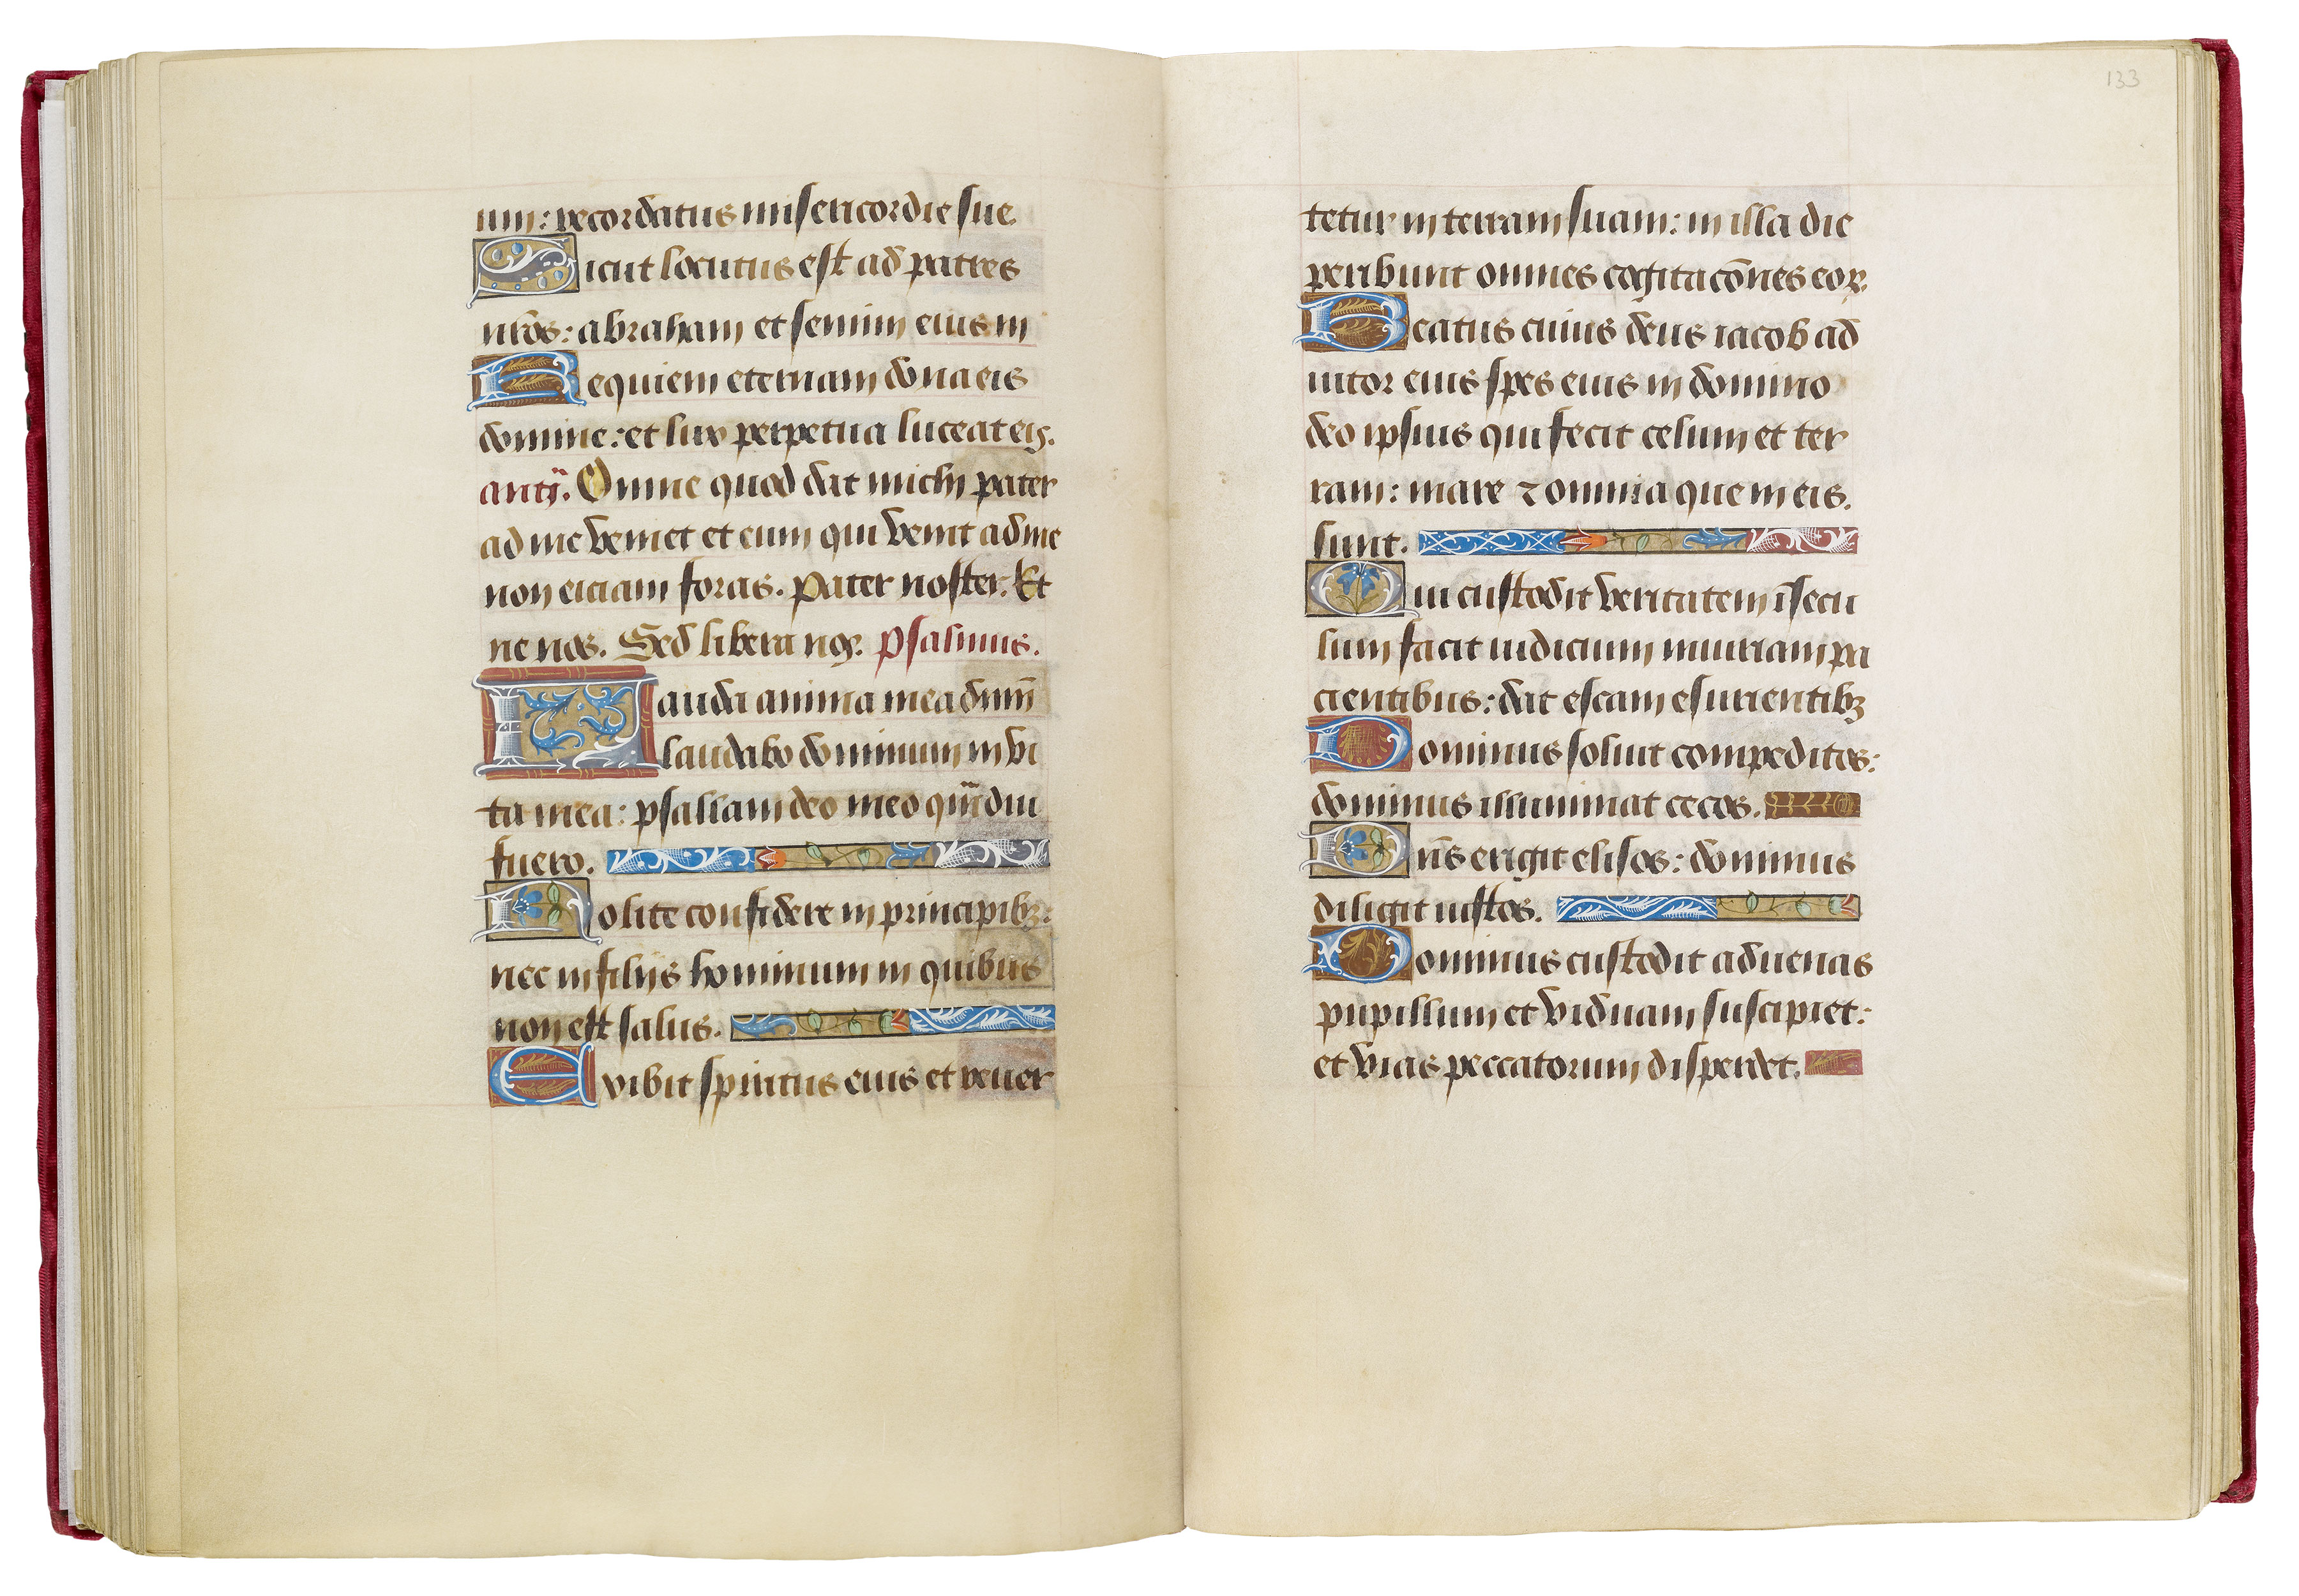 um: recordatus misericordie sue
Sicut locutus est ad patres
nr̄os: abraham et semini eius in
Requiem eternam dona eis
domine: et lux perpetua luceat eis.
antī. Omne quod dat michi pater
ad me veniet et eum qui venit ad me
non eiciam foras. Pater noster. Et
ne nos. Sed libera nos. Psalmus.
Lauda anima mea dn̄m
laudabo dominum in vi
ta mea: psallam deo meo qm̄diu
fuero.
Nolite confidere in principibꝫ:
nec in filijs hominum in quibus
non est salus.
Exibit spiritus eius et reuer
133
tetur in terram suam: in illa die
peribunt omnes cogitacōnes eoꝝ.
Beatus cuius deus iacob ad
iutor eius spes eius in domino
deo ipsius qui fecit celum et ter
ram: mare ⁊ omnia que in eis.
sunt.
Qui custodit veritatem ī secu
lum facit iudicium iniuriam pa
cientibus: dat escam esurientibꝫ
Dominus soluit compeditos:
dominus illuminat cecos.
Dn̄s erigit elisos: dominus
diligit iustos.
Dominus custodit aduenas
pupillum et viduam suscipiet:
et vias peccatorum disperdet.